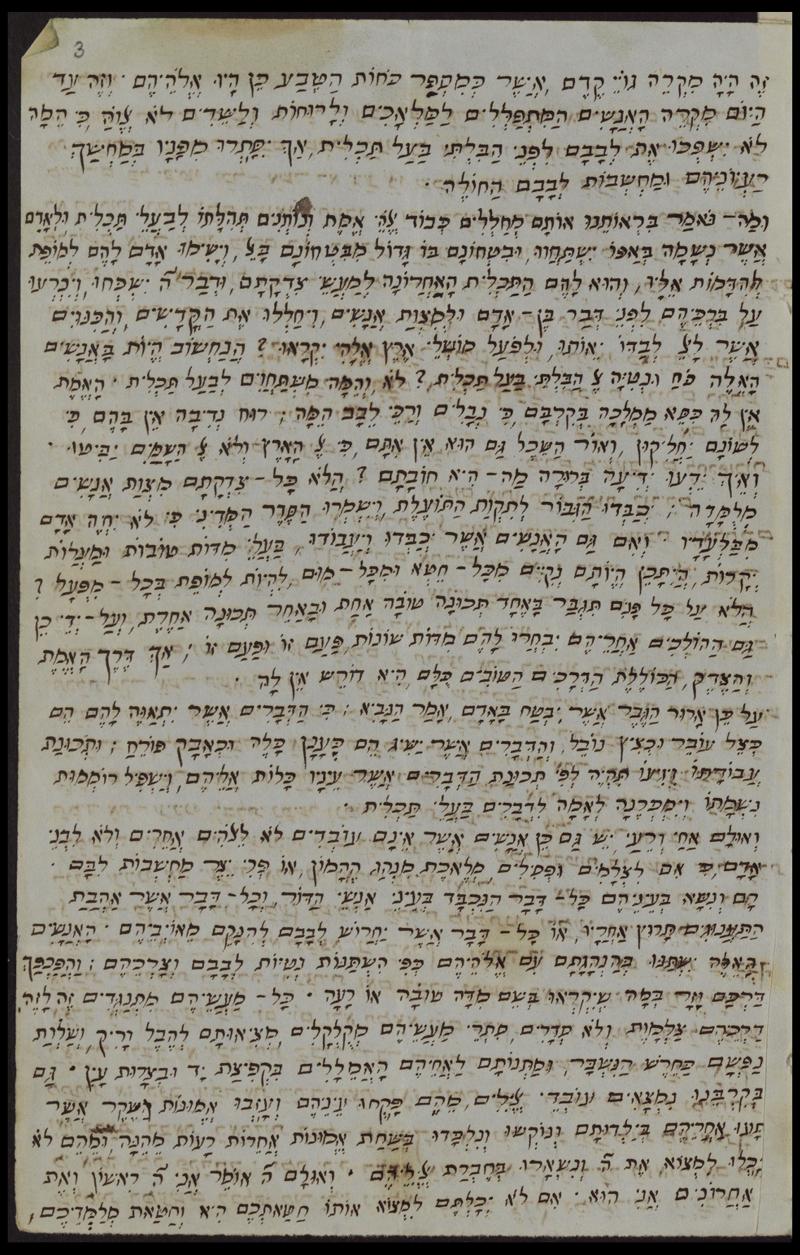 3
זֶה הָיָה מִקְרֵה גוֹיֵי קֶדֶם, אֲשֶׁר כְּמִסְפַּר כֹּחוֹת הַטֶּבַע כֵּן הָיוּ אֱלֹהֵיהֶם. וְזֶה עַד
הַיּוֹם מִקְרֵה הָאֲנָשִׁים הַמִּתְפַּלְלִים לַמַּלְאָכִים וְלָרוּחוֹת וְלַשֵּׁדִים לֹא אֱלוֹהַּ, כִּי הֵמָּה
לֹא יִשְׁפְּכוּ אֶת לְבָבָם לִפְנֵי הַבִּלְתִּי בַּעַל תַּכְלִית, אַךְ יִסָּתְרוּ מִפָּנָיו בְּמַחְשַׁךְ
רַעְיוֹנֵיהֶם וּמַחְשְׁבוֹת לְבָבָם הַחוֹלֶה.
וּמַה־נֹּאמַר בִּרְאוֹתֵנוּ אוֹתָם מְחַלְלִים כְּבוֹד אֱלֹהֵי אֱמֶת וְנוֹתְנִים תְּהִלָּתוֹ לְבַעֲלֵי תַּכְלִית וּלְאָדָם
אֲשֶׁר נְשָׁמָה בְּאַפּוֹ יִשְׁתַּחֲווּ, וּבִטְחוֹנָם בּוֹ גָּדוֹל מִבִּטְחוֹנָם בָּאֵל, וְיָשִׂימוּ אָדָם לָהֶם לְמוֹפֵת
לְהִדָּמוֹת אֵלָיו, וְהוּא לָהֶם הַתַּכְלִית הָאַחֲרוֹנָה לְמַעֲשֵׂי צִדְקָתָם, וּדְבַר ה' יִשְׁכְּחוּ, וְיִכְרְעוּ
עַל בִּרְכֵּיהֶם לִפְנֵי דְּבַר בֶּן־אָדָם וּלְמִצְוַת אֲנָשִׁים, וִיחַלְּלוּ אֶת הַקֳּדָשִׁים, וְהַכִּנּוּיִם
אֲשֶׁר לָאֵל לְבַדּוֹ יֵאוֹתוּ, וּלְפֹעַל מוֹשְׁלֵי אֶרֶץ אֱלֹהִי יִקְרָאוּ? הֲנַחְשׁוֹב הֱיוֹת בָּאֲנָשִׁים
הָאֵלֶּה כֹּחַ וּנְטִיָּה אֶל הַבִּלְתִּי בַּעַל תַּכְלִית? לֹא, וְהֵמָּה מִשְׁתַּחֲוִים לְבַעַל תַּכְלִית. הָאֱמֶת
אֵין לָהּ כִּסֵּא מַמְלָכָה בְּקִרְבָּם, כִּי נְבָלִים וְרַכֵּי לֵבָב הֵמָּה; רוּחַ נְדִיבָה אֵין בָּהֶם, כִּי
לְשׁוֹנָם יַחֲלִיקוּן, וְאוֹר הַשֵּׂכֶל גַּם הוּא אֵין אִתָּם, כִּי אֶל הָאָרֶץ וְלֹא אֶל הַשָּׁמַיִם יַבִּיטוּ.
וְאֵיךְ יֵדְעוּ יְדִיעָה בְּרוּרָה מַה־הִיא חוֹבָתָם? הֲלֹא כָּל־צִדְקָתָם מִצְוַת אֲנָשִׁים
מְלֻמָּדָה; יְכַבְּדוּ הַגִּבּוֹר לְתִקְוַת הַתּוֹעֶלֶת, וְיִשְׁמְרוּ הַסֵּדֶר הַמְּדִינִי כִּי לֹא יִחְיֶה אָדָם
מִבַּלְעָדָיו. וְאִם גַּם הָאֲנָשִׁים אֲשֶׁר יְכַבְּדוּ וְיַעֲבוֹדוּ, בַּעֲלֵי מִדּוֹת טוֹבוֹת וּמַעֲלוֹת
יְקָרוֹת, הֲיִתָּכֵן הֱיוֹתָם נְקִיִּים מִכָּל־חֵטְא וּמִכָּל־מוּם, לִהְיוֹת לְמוֹפֵת בְּכָל־מִפְעָל?
הֲלֹא עַל כָּל פָּנִים תִּגְבַּר בָּאֶחָד תְּכוּנָה טוֹבָה אַחַת וּבָאַחֵר תְּכוּנָה אַחֶרֶת, וְעַל־יְדֵי כֵן
גַּם הַהוֹלְכִים אַחֲרֵיהֶם יִבְחֲרוּ לָהֶם מִדּוֹת שׁוֹנוֹת, פַּעַם זוֹ וּפַעַם זוֹ; אַךְ דֶּרֶךְ הָאֱמֶת
וְהַצֶּדֶק, הַכּוֹלֶלֶת הַדְּרָכִים הַטּוֹבִים כֻּלָּם, הִיא דּוֹרֵשׁ אֵין לָהּ.
עַל כֵּן אָרוּר הַגֶּבֶר אֲשֶׁר יִבְטַח בָּאָדָם, אָמַר הַנָּבִיא; כִּי הַדְּבָרִים אֲשֶׁר יִתְאַוֶּה לָהֶם הֵם
כְּצֵל עוֹבֵר וּכְצִיץ נוֹבֵל, וְהַדְּבָרִים אֲשֶׁר יַשִּׂיג הֵם כְּעָנָן כָּלֶה וּכְאָבָק פּוֹרֵחַ; וּתְכוּנַת
עֲבוֹדָתוֹ תִּהְיֶה לְפִי תְכוּנַת הַדְּבָרִים אֲשֶׁר עֵינָיו כָּלוֹת אֲלֵיהֶם, וְיַשְׁפִּיל רוֹמְמוּת
נִשְׁמָתוֹ וְיִמְכְּרֶנָּה לְאָמָה לִדְבָרִים בַּעֲלֵי תַכְלִית.
וְאוּלָם אַחַי וְרֵעַי יֵשׁ גַּם כֵּן אֲנָשִׁים אֲשֶׁר אֵינָם עוֹבְדִים לֹא לֵאלֹהִים אֲחֵרִים וְלֹא לִבְנֵי
אָדָם, כִּי אִם לִצְלָמִים וּפְסִילִים, מְלֶאכֶת מִנְהַג הֶהָמוֹן, אוֹ פְּרִי יֵצֶר מַחְשְׁבוֹת לִבָּם.
רָם וְנִשָּׂא בְּעֵינֵיהֶם כָּל־דָּבָר הַנִּכְבָּד בְּעֵינֵי אַנְשֵׁי הַדּוֹר, וְכָל־דָּבָר אֲשֶׁר אַהֲבַת
הַתַּעֲנוּגִים תָּרוּץ אַחֲרָיו, אוֹ כָּל־דָּבָר אֲשֶׁר יַחֲרוֹשׁ לְבָבָם לְהִנָּקֵם מֵאוֹיְבֵיהֶם. הָאֲנָשִׁים
הָאֵלֶּה יִשְׁתַּנּוּ בְּהַנְהָגָתָם עִם אֱלֹהֵיהֶם כְּפִי הִשְׁתַּנּוֹת נְטִיּוֹת לְבָבָם וְצָרְכֵיהֶם; וַהֲפַכְפַּךְ
דַּרְכָּם וָזָר בַּמֶּה שֶׁיִּקְרְאוּ בְּשֵׁם מִדָּה טוֹבָה אוֹ רָעָה. כָּל־מַעֲשֵׂיהֶם מִתְנַגְּדִים זֶה לָזֶה,
דַּרְכֵיהֶם צַלְמָוֶת וְלֹא סְדָרִים, סִתְרֵי מַעֲשֵׂיהֶם מְקֻלְקָלִים, מְצִיאוּתָם לְהֶבֶל וָרִיק, וְשַׁלְוַת
נַפְשָׁם כַּחֶרֶשׂ הַנִּשְׁבָּר, וּמַתְּנוֹתָם לַאֲחֵיהֶם הָאֻמְלָלִים בִּקְפִיצַת יָד וּבְצָרוּת עָיִן. גַּם
בְּקִרְבֵּנוּ נִמְצָאִים עוֹבְדֵי אֱלִילִים, מֵהֶם פָּקְחוּ עֵינֵיהֶם וְעָזְבוּ אֱמוּנוֹת הַשֶּׁקֶר אֲשֶׁר
תָּעוּ אַחֲרֵיהֶם בְּיַלְדוּתָם וְנוֹקְשׁוּ וְנִלְכְּדוּ בְּשַׁחַת אֱמוּנוֹת אֲחֵרוֹת רָעוֹת מֵהֵנָּה, וּמֵהֶם לֹא
יָכְלוּ לִמְצוֹא אֶת ה' וְנִשְׁאֲרוּ בְּחֶבְרַת אֱלִילֵיהֶם. וְאוּלָם ה' אוֹמֵר אֲנִי ה' רִאשׁוֹן וְאֶת
אַחֲרוֹנִים אֲנִי הוּא. אִם לֹא יְכָלְתֶּם לִמְצוֹא אוֹתוֹ חַטַּאתְכֶם הִיא וְחַטַּאת מְלַמְּדֵיכֶם,